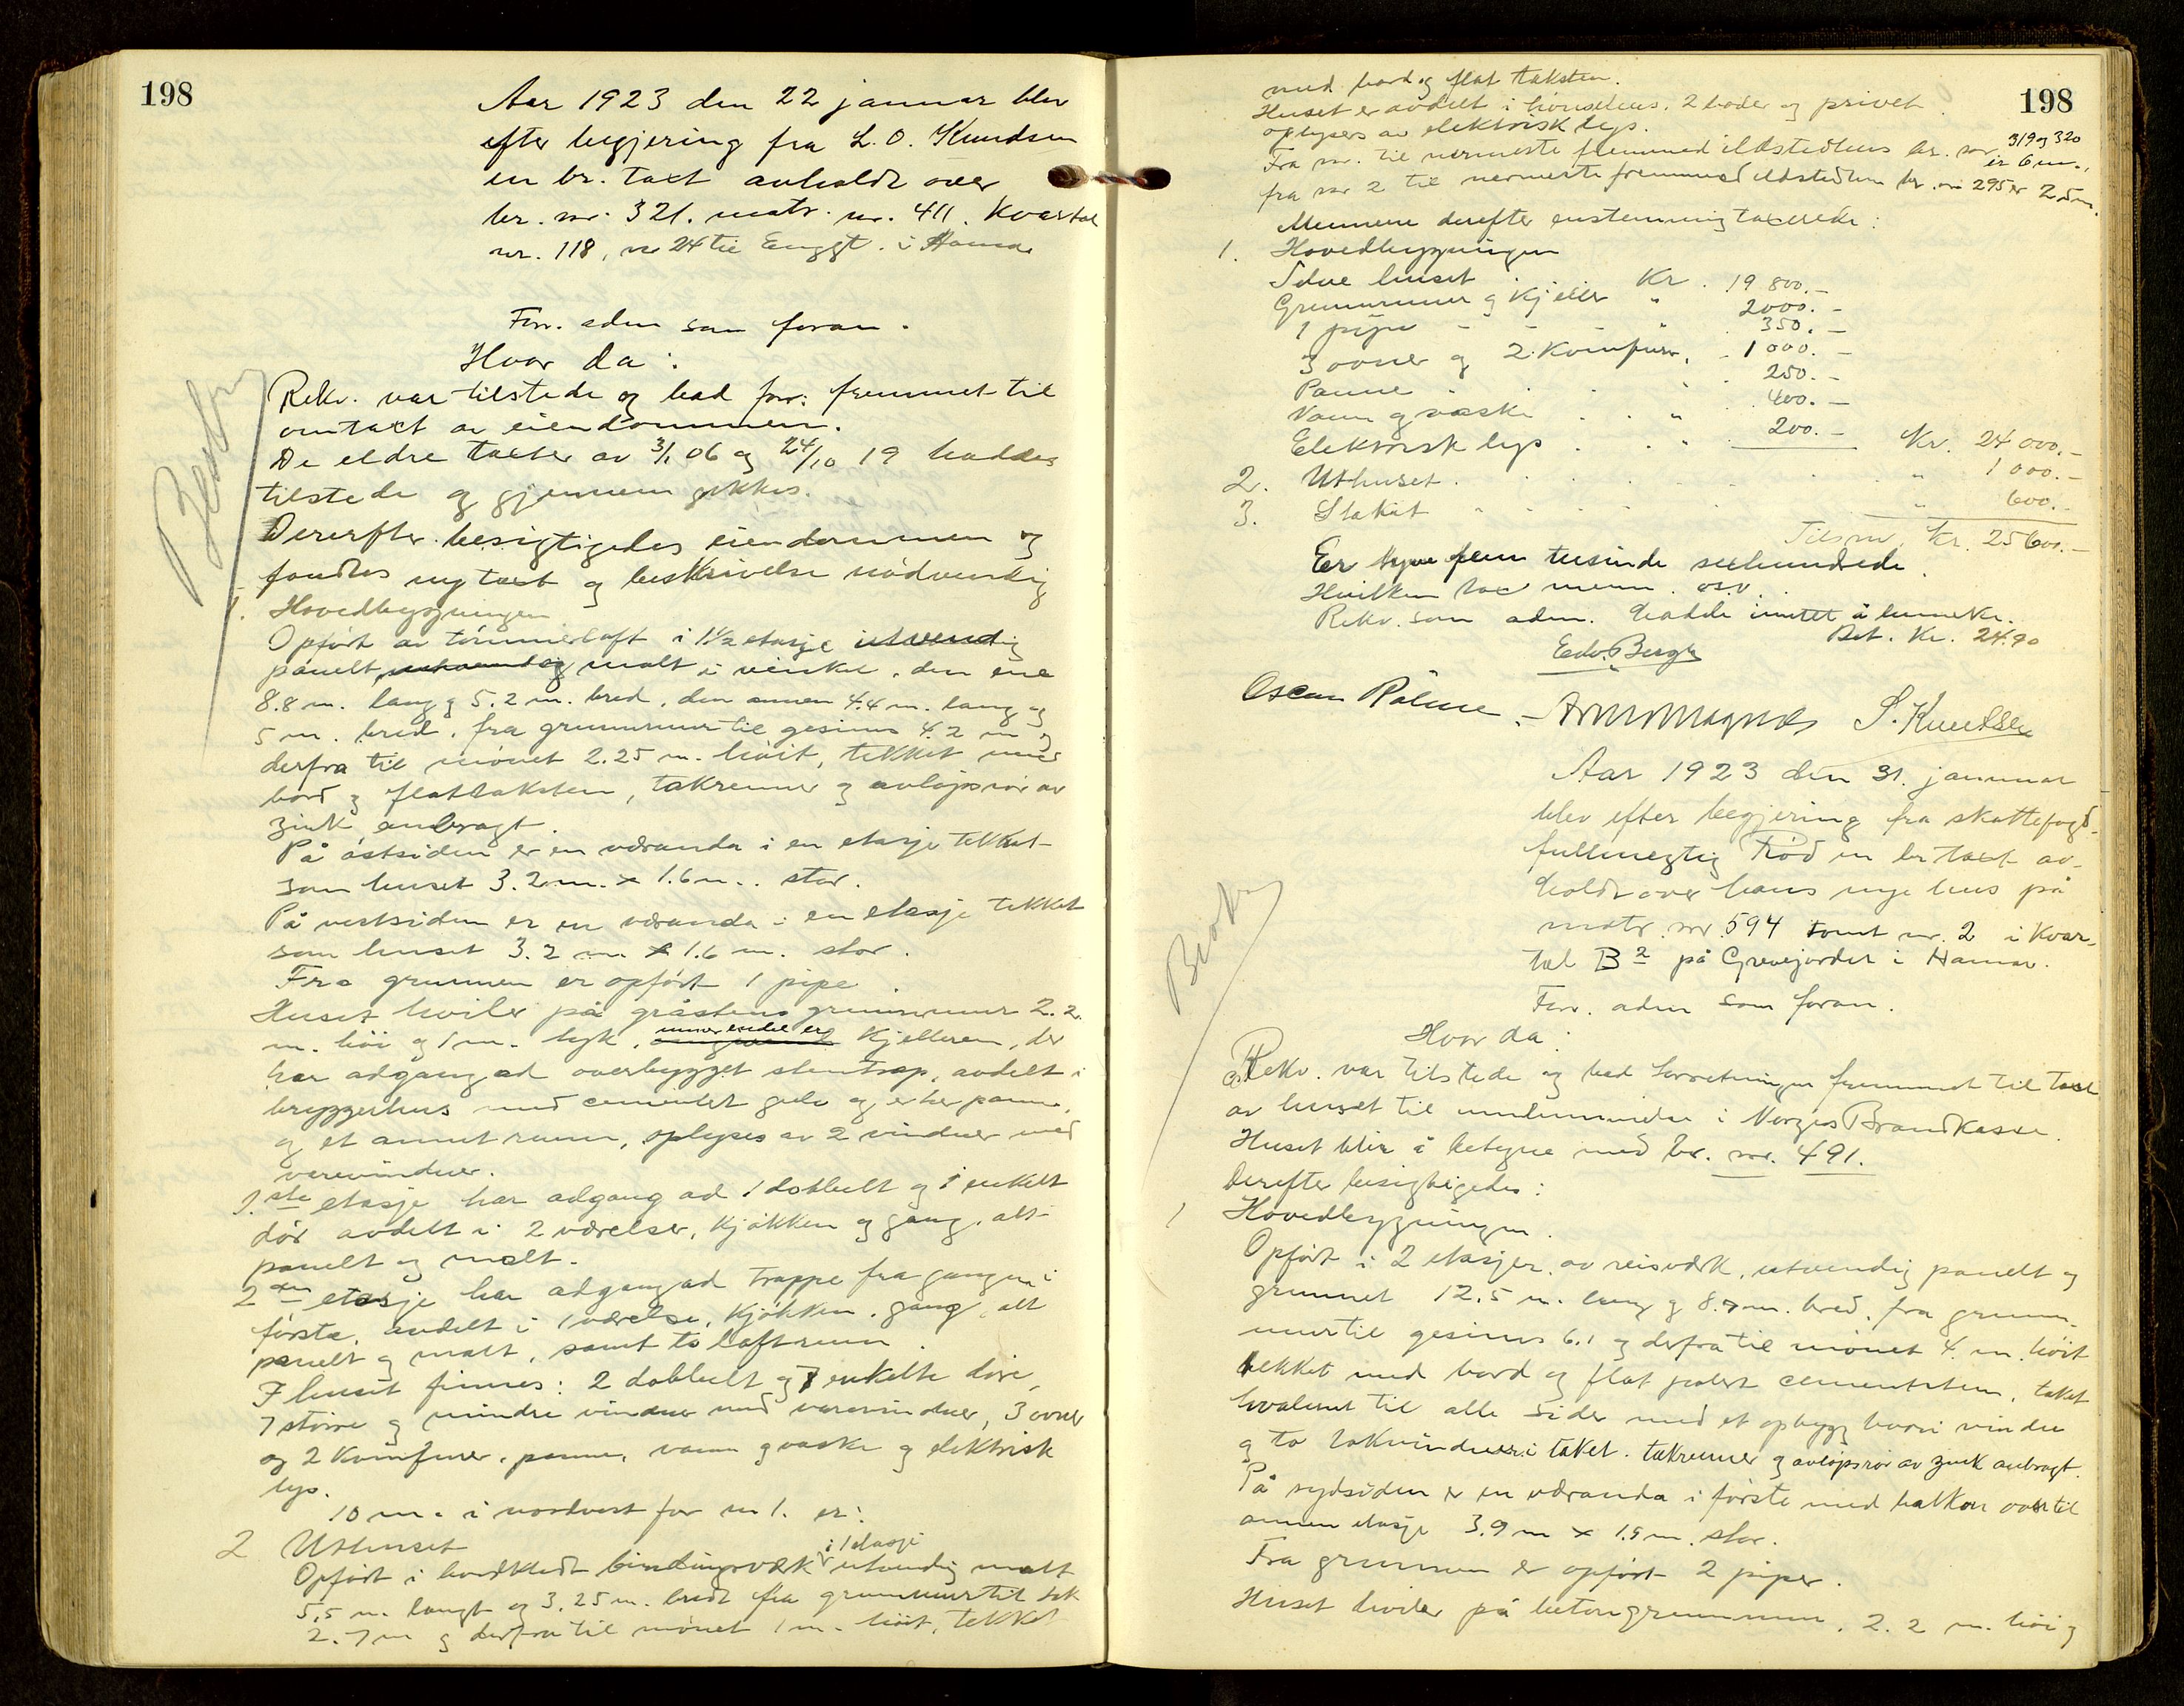 198
Aar 1923 den 22 januar blev
efter begjering fra L. O. Knudsen
en br. taxt avholdt over
br. nr. 321. matr. nr. 411. Kvartal
nr. 118, nr 24 til Enggt. i Hamar
Forr. adm som foran.
Hvor da:
Rekv. var tilstede og bad forr. fremmet til
omtaxt av eiendommen.
De eldre taxter av 3/1 06 og 24/10 19 haddes
tilstede og gjennemgikkes.
Derefter besigtigedes eiendommen og
fandtes ny taxt og beskrivelse nødvendig
1. Hovedbygningen
Opført av tømmerloft i 1½ etasje utvendig
panelt, utvendig malt i vinkel. den ene
8.8 m. lang og 5.2 m. bred, den annen 4.4 m. lang og
5 m. bred. fra grunnmur til gesims 4.2 m og
derfra til mønet 2.25 m. høit, tekket med
bord og flat taksten, takrenner og avløpsrør av
zink anbragt.
På østsiden er en veranda i en etasje tekket
som huset 3.20 m. x 1.6 m. stor.
På vestsiden er en veranda i en etasje tekket
som huset 3.2 m. x 1.6 m. stor.
Fra grunnen er opført 1 pipe.
Huset hviler på gråstens grunnmur 2.2
m. høi og 1 m. tyk, under endel er Kjelleren, der
har adgang ad overbygget stentrap, avdelt i
bryggerhus med cementert gulv og er her panne,
og et annet rum, oplyses av 2 vinduer med
varevinduer.
1ste etasje har adgang ad 1 dobbelt og 1 enkelt
dør avdelt i 2 værelser, kjøkken og gang, alt
panelt og malt.
2den etasje har adgang ad trappe fra gangen i
første, avdelt i 1 værelse, kjøkken, gang, alt
panelt og malt, samt to loftrum.
I huset finnes: 2 dobbelt og 7 enkelte døre,
7 større og mindre vinduer med varevinduer, 3 ovner
og 2 Komfurer, panne, vann og vaske og elektrisk
lys.
10 m. i nordvest for nr 1. er:
2 Uthuset
i 1 etasje
Opført i bordkledt bindingsverk utvendig malt
5.5 m. langt og 3.25 m. bredt fra grunnmur til tak
2.7 m og derfra til mønet 1 m. høit, tekket
198
med bord og flat taksten.
Huset er avdelt i hønsehus, 2 boder og privet
oplyses av elektrisk lys.
Fra nr. 1 til nermeste fremmed ildstedhus br. nr. 319 og 320
er 6 m.,
fra nr 2 til nermeste fremmed ildstedhus br. nr 295 er 25 m.
Mennene derefter enstemmig taxerede:
1. Hovedbygningen
Selve huset . Kr. 19 800.-
Grunnmur og kjeller " 2000.-
1 pipe - - " 350.-
3 ovner og 2 Komfurer, - 1000.-
Panne . . " 250.-
Vann og vaske . . " 400.-
Elektrisk lys . . " 200.- Kr. 24 000.-
2. Uthuset . . . . " 1 000.-
3. Stakit . . . . " 600.-
Tilsm. Kr. 25 600.-
Er tyve fem tusinde sexhundrede.
Hvilken tax menn. osv.
Rekv. som adm. hadde intet å bemerke.
Bet. Kr. 24.90
Edv. Bergh
Oscar Palme. - Arne Magnus S. Knudsen
Aar 1923 den 31. januar
blev efter begjering fra skattefogd-
fullmegtig Frød en br taxt av-
holdt over hans nye hus på
matr. nr. 594 tomt nr. 2 i Kvar-
tal B 2 på Grevejordet i Hamar.
Forr. adm som foran.
Hvor da:
Rekv. var tilstede og bad forretningen fremmet til taxt
av huset til innlemmelse i Norges Brandkasse.
Huset blir å betegne med br. nr. 491.
Derefter besigtigedes:
1 Hovedbygningen.
Opført i 2 etasjer, av reisverk, utvendig panelt og
grunnet 12.5 m. lang og 8.7 m. bred, fra grunn-
mur til gesims 6.1 og derfra til mønet 4. m. høit
tekket med bord og flat cementsten, taket
hvalmet til alle sider med et opbygg hvori vindu
og to takvinduer i taket. takrenner og avløpsrør av zink anbragt.
På sydsiden er en veranda i første med balkon over til
annen etasje 3.9 m x 1.5 m. stor.
Fra grunnen er opført 2 piper.
Huset hviler på betongrunnmur, 2.2 m. høi og